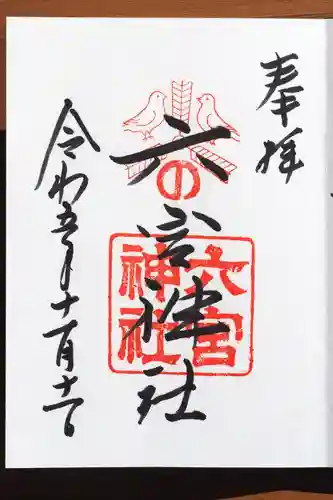 奉拝
六の宮神社
六宮神社
令和五年十一月十一日